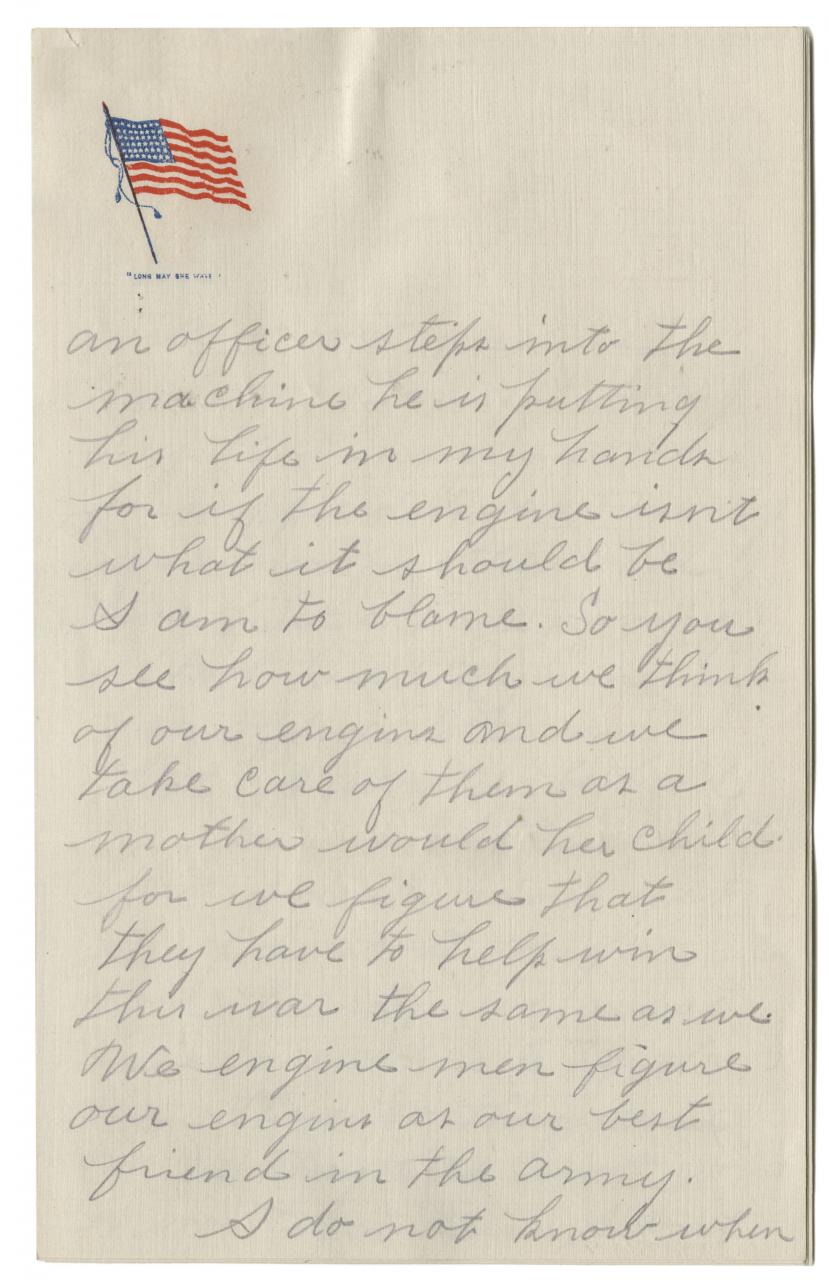 "LONG MAY SHE WAVE"
an officer steps into the
machine he is putting
his life in my hands
for if the engine isnt
what it should be
I am to blame. So you
see how much we think
of our engine and we
take care of them as a
mother would her child.
for we figure that
they have to help win
this war the same as we.
We engine men figure
our engine as our best
friend in the army.
I do not know when